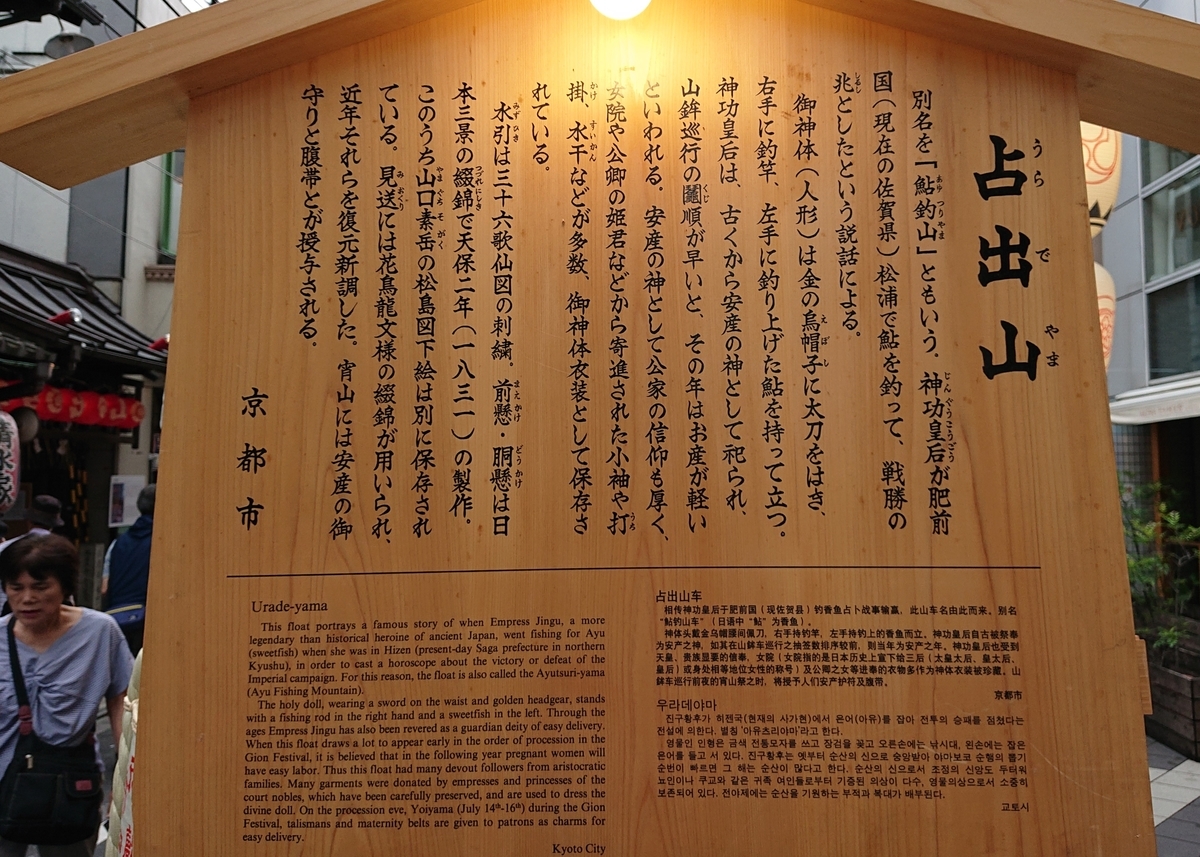 占出山
うらでやま
別名を「鮎釣山」ともいう、神功皇后が肥前
国（現在の佐賀県）松浦で鮎を釣って、戦勝の
兆としたという説話による。
御神体（人形）は金の烏帽子に太刀をはき、
右手に釣竿、左手に釣り上げた鮎を持って立つ。
神功皇后は、古くから安産の神として祀られ、
山鉾巡行の鬮順が早いと、その年はお産が軽い
といわれる。安産の神として公家の信仰も厚く、
女院や公卿の姫君などから寄進された小袖や打
掛、水干などが多数、御神体衣装として保存さ
れている。
水引は三十六歌仙図の刺繍。前懸・胴懸は日
本三景の綴錦で天保二年（一八三一）の製作。
このうち山口素岳の松島図下絵は別に保存され
ている。見送には花鳥龍文様の綴錦が用いられ、
近年それらを復元新調した。宵山には安産の御
守りと腹帯とが授与される。
京都市
Urade-yama
This float portrays a famous story of when Empress Jingu, a more
legendary than historical heroine of ancient Japan, went fishing for Ayu
(sweetfish) when she was in Hizen (present-day Saga prefecture in northern
Kyushu), in order to cast a horoscope about the victory or defeat of the
Imperial campaign. For this reason, the float is also called the Ayutsuri-yama
(Ayu Fishing Mountain).
The holy doll, wearing a sword on the waist and golden headgear, stands
with a fishing rod in the right hand and a sweetfish in the left. Through the
ages Empress Jingu has also been revered as a guardian deity of easy delivery.
When this float draws a lot to appear early in the order of procession in the
Gion Festival, it is believed that in the following year pregnant women will
have easy labor. Thus this float had many devout followers from aristocratic
families. Many garments were donated by empresses and princesses of the
court nobles, which have been carefully preserved, and are used to dress the
divine doll. On the procession eve, Yoiyama (July 14th-16th) during the Gion
Festival, talismans and maternity belts are given to patrons as charms for
easy delivery.
Kyoto City
占出山车
相传神功皇后于肥前国（现佐贺县）钓香鱼占卜战事输赢，此山车名由此而来。别名
“鲇钓山车”（日语中“鲇”为香鱼）。
神体头戴金乌帽腰间佩刀，右手持钓竿，左手持钓上的香鱼而立。神功皇后自古被祭奉
为安产之神，如其在山鉾车巡行之抽签数排序较前，则当年为安产之年。神功皇后也受到
天皇、贵族显要的信奉，女院（女院指的是日本历史上宣下给三后（太皇太后、皇太后、
皇后）或身处相等地位女性的称号）及公卿之女等进奉的衣物多作为神体衣装被珍藏。山
鉾车巡行前夜的宵山祭之时，将授予人们安产护符及腹带。
京都市
우라데야마
진구황후가 히젠국(현재의 사가현)에서 은어(아유)를 잡아 전투의 승패를 점쳤다는
전설에 의한다. 별칭 '아유츠리야마'라고 한다.
영물인 인형은 금색 전통모자를 쓰고 장검을 꽂고 오른손에는 낚시대, 왼손에는 잡은
은어를 들고 서 있다. 진구황후는 옛부터 순산의 신으로 숭앙받아 야마보코 순행의 뽑기
순번이 빠르면 그 해는 순산이 많다고 한다. 순산의 신으로서 조정의 신앙도 두터워
뇨인이나 쿠교와 같은 귀족 여인들로부터 기증된 의상이 다수, 영물의상으로서 소중히
보존되어 있다. 전야제에는 순산을 기원하는 부적과 복대가 배부된다.
교토시